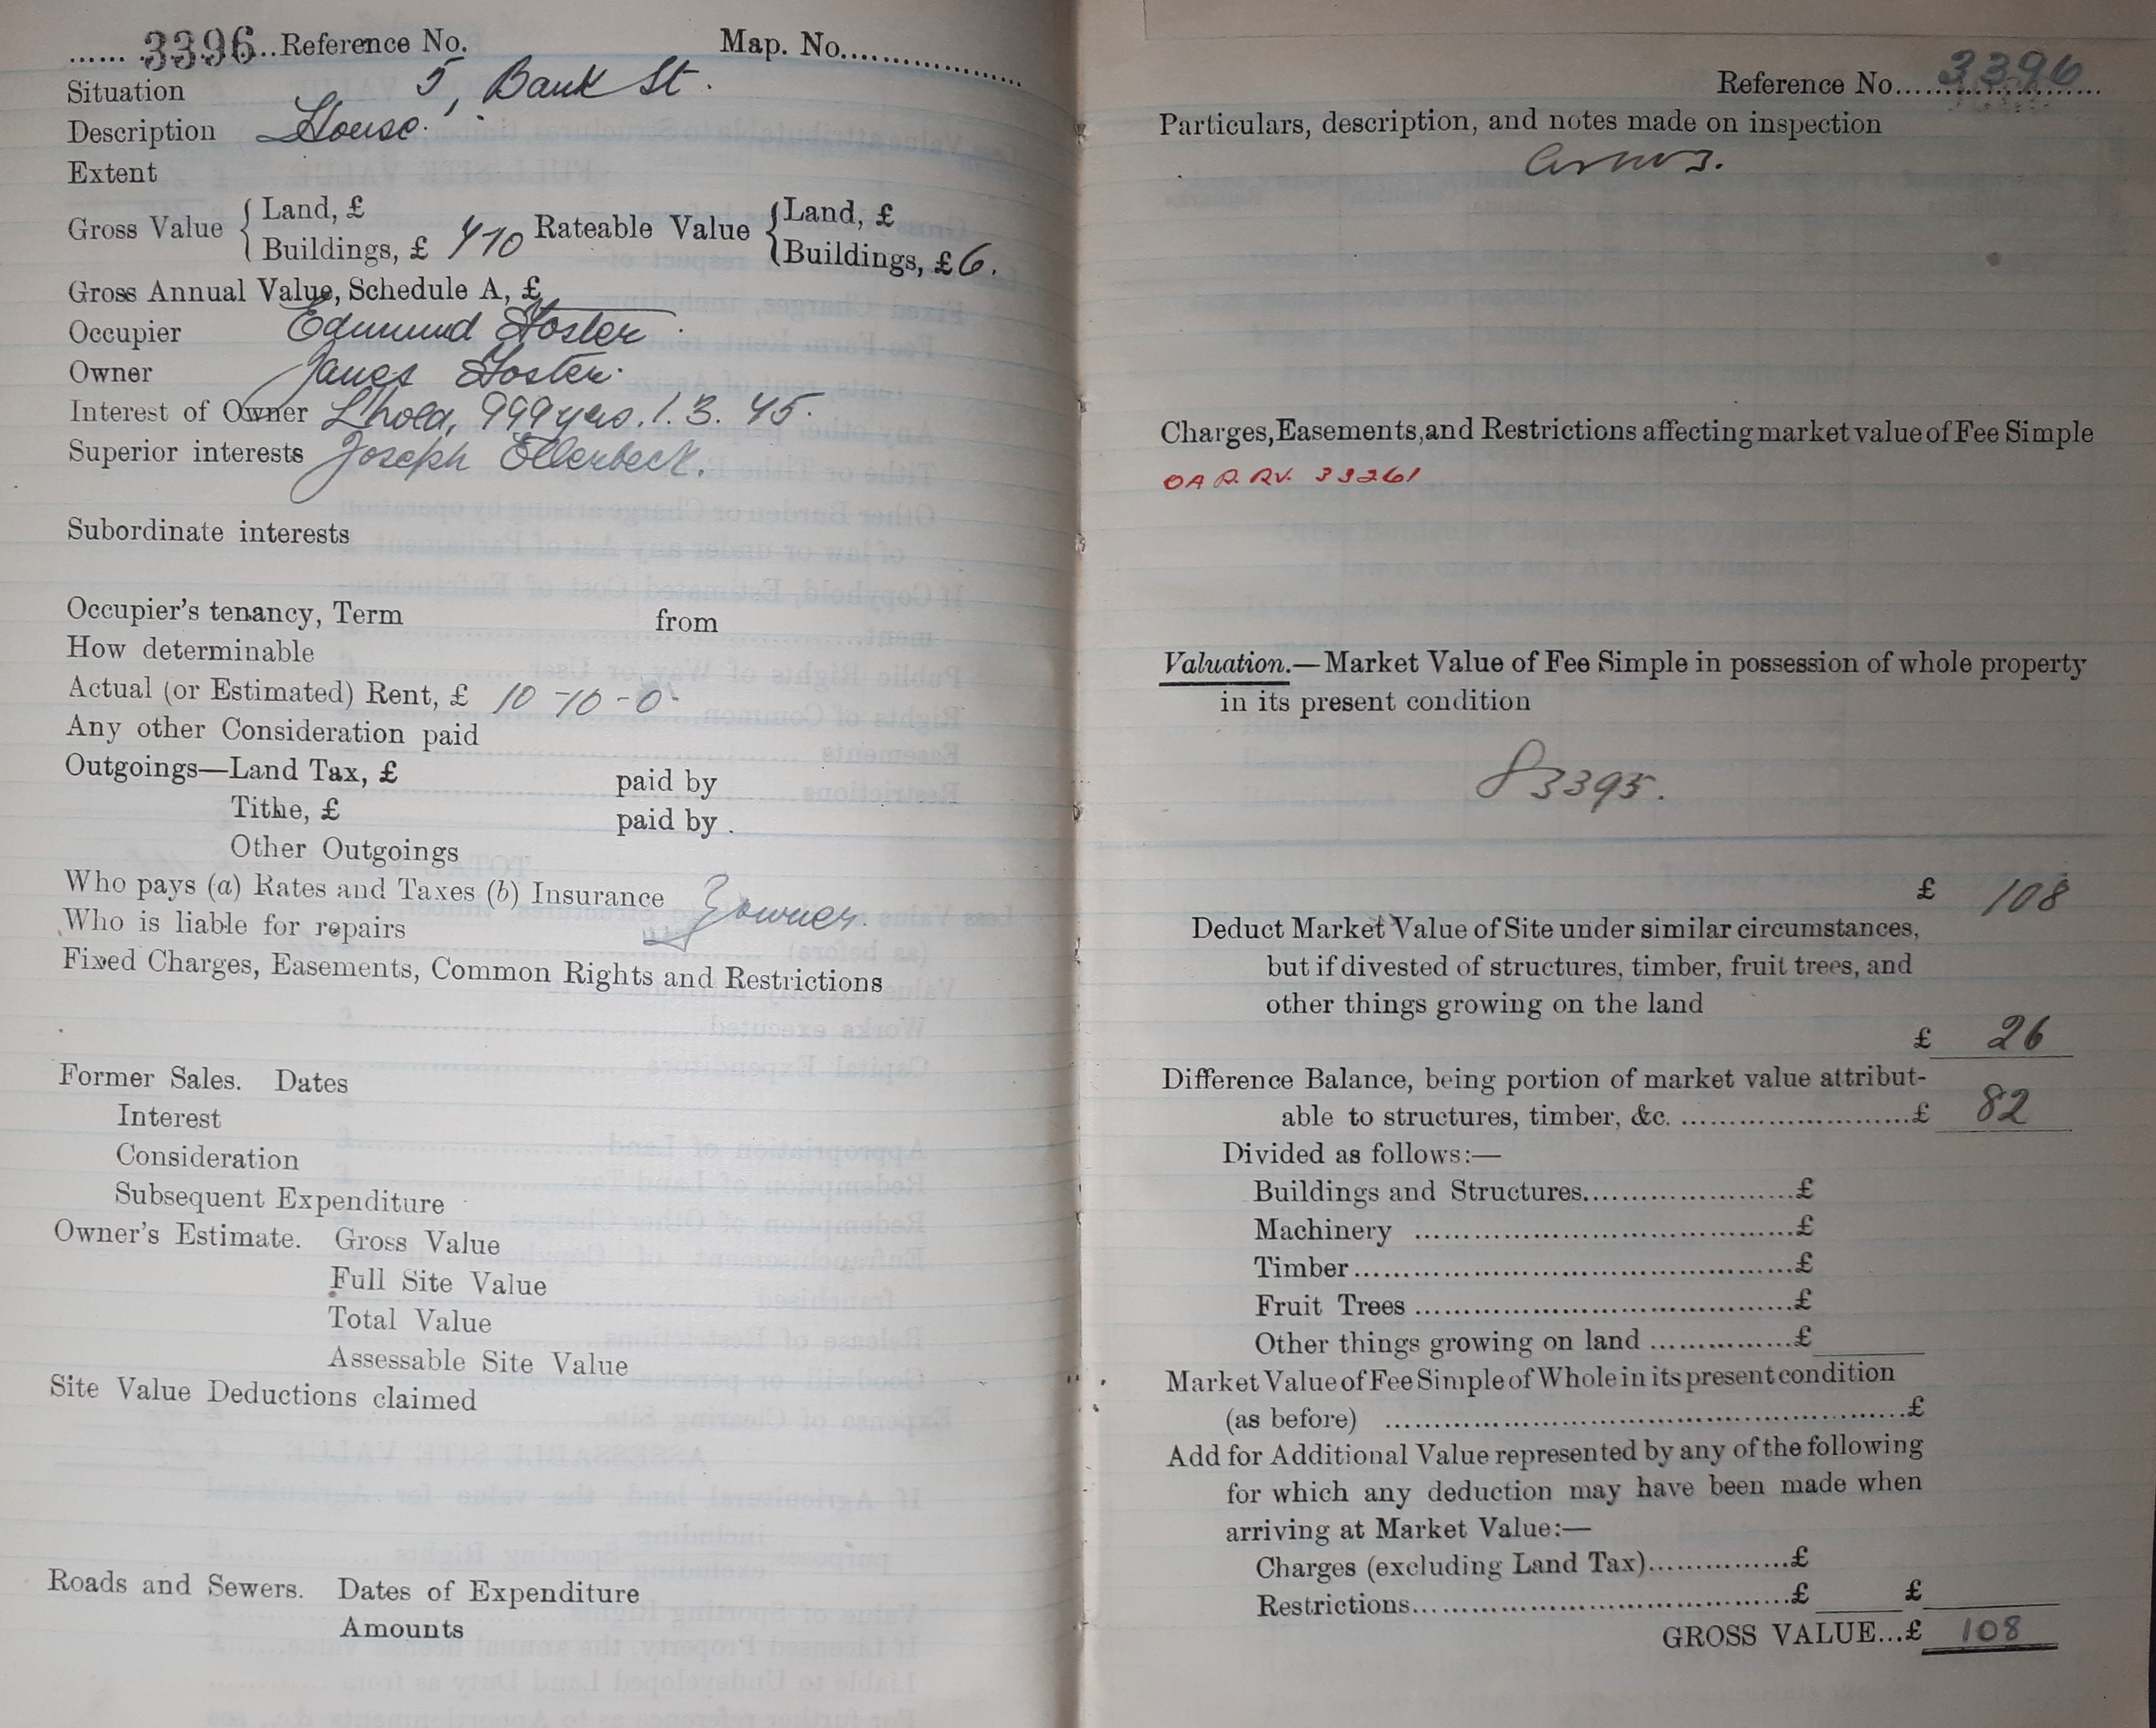 ...... 3396..Reference No.
Map. No....................
Situation 5, Bank St.
Description House.
Extent
Gross Value { Land, £
Buildings, £ 7/10
Rateable Value { Land, £
Buildings, £6.
Gross Annual Value, Schedule A, £
Occupier Edmund Foster
Owner James Foster.
Interest of Owner L'hold, 999 yrs. 1. 3. 45.
Superior interests Joseph Ellerbeck.
Subordinate interests
Occupier's tenancy, Term from
How determinable
Actual (or Estimated) Rent, £ 10-10-0.
Any other Consideration paid
Outgoings—Land Tax, £ paid by
Tithe, £ paid by
Other Outgoings
Who pays (a) Rates and Taxes (b) Insurance } owner.
Who is liable for repairs
Fixed Charges, Easements, Common Rights and Restrictions
Former Sales. Dates
Interest
Consideration
Subsequent Expenditure
Owner's Estimate. Gross Value
Full Site Value
Total Value
Assessable Site Value
Site Value Deductions claimed
Roads and Sewers. Dates of Expenditure
Amounts
Reference No. 3396
Particulars, description, and notes made on inspection
Charges, Easements, and Restrictions affecting market value of Fee Simple
33261
Valuation.—Market Value of Fee Simple in possession of whole property
in its present condition
3395.
£ 108
Deduct Market Value of Site under similar circumstances,
but if divested of structures, timber, fruit trees, and
other things growing on the land
£ 26
Difference Balance, being portion of market value attribut-
able to structures, timber, &c. ........................£ 82
Divided as follows:—
Buildings and Structures......................£
Machinery ......................................£
Timber............................................£
Fruit Trees ......................................£
Other things growing on land ..............£
Market Value of Fee Simple of Whole in its present condition
(as before) ......................................................£
Add for Additional Value represented by any of the following
for which any deduction may have been made when
arriving at Market Value:—
Charges (excluding Land Tax)...............£
Restrictions......................................£ £
GROSS VALUE...£ 108